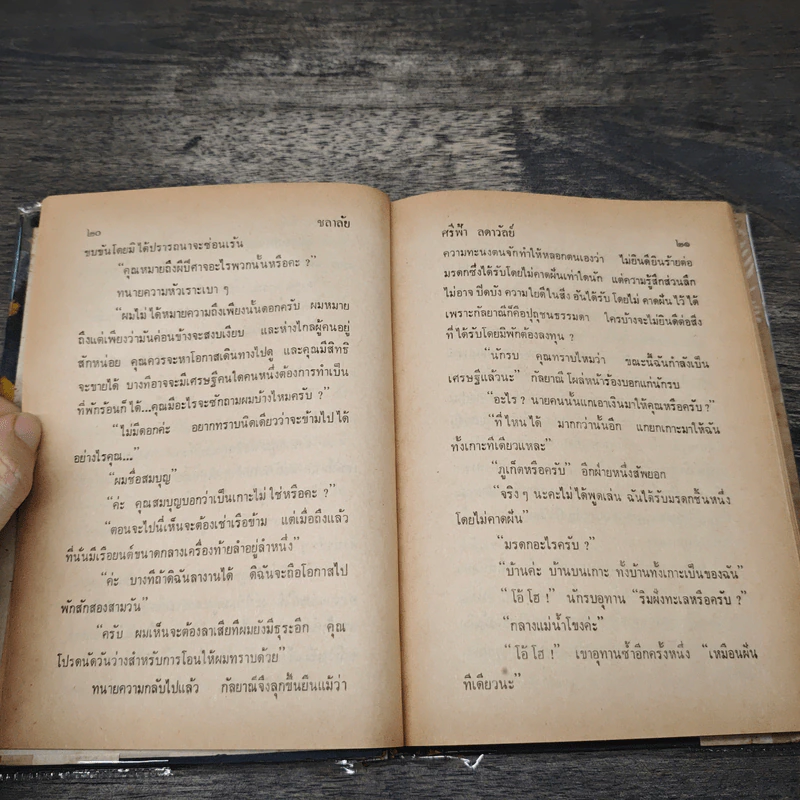 ๒๐
ชลาลัย
ขบขันโดยมิได้ปรารถนาจะซ่อนเร้น
“คุณหมายถึงผีปีศาจอะไรพวกนั้นหรือคะ ?”
ทนายความหัวเราะเบา ๆ
“ผมไม่ได้หมายความถึงเพียงนั้นดอกครับ ผมหมาย
ถึงแต่เพียงว่ามันค่อนข้างจะสงบเงียบ และห่างไกลผู้คนอยู่
สักหน่อย คุณควรจะหาโอกาสเดินทางไปดู และคุณมีสิทธิ
จะขายได้ บางทีอาจจะมีเศรษฐีคนใดคนหนึ่งต้องการทำเป็น
ที่พักร้อนก็ได้...คุณมีอะไรจะซักถามผมบ้างไหมครับ ?”
“ไม่มีดอกค่ะ อยากทราบนิดเดียวว่าจะข้ามไปได้
อย่างไรคุณ...”
“ผมชื่อสมบุญ”
“ค่ะ คุณสมบุญบอกว่าเป็นเกาะไม่ใช่หรือคะ ?”
“ตอนจะไปนี่เห็นจะต้องเช่าเรือข้าม แต่เมื่อถึงแล้ว
ที่นั่นมีเรือยนต์ขนาดกลางเครื่องท้ายลำอยู่ลำหนึ่ง”
“ค่ะ บางทีถ้าดิฉันลางานได้ ดิฉันจะถือโอกาสไป
พักสักสองสามวัน”
“ครับ ผมเห็นจะต้องลาเสียทีผมยังมีธุระอีก คุณ
โปรดนัดวันว่างสำหรับการโอนให้ผมทราบด้วย”
ทนายความกลับไปแล้ว กัลยาณีจึงลุกขึ้นยืนแม้ว่า
ศรีฟ้า ลดาวัลย์
๒๑
ความทะนงตนจักทำให้หลอกตนเองว่า ไม่ยินดียินร้ายต่อ
มรดกซึ่งได้รับโดยไม่คาดฝันเท่าใดนัก แต่ความรู้สึกส่วนลึก
ไม่อาจ ปิดบัง ความใยดีในสิ่ง อันได้รับ โดยไม่ คาดฝัน ไว้ได้
เพราะกัลยาณีก็คือปุถุชนธรรมดา ใครบ้างจะไม่ยินดีต่อสิ่ง
ที่ได้รับโดยมิพักต้องลงทุน ?
“นักรบ คุณทราบไหมว่า ขณะนี้ฉันกำลังเป็น
เศรษฐีแล้วนะ” กัลยาณี โผล่หน้าร้องบอกแก่นักรบ
“อะไร ? นายคนนั้นแกเอาเงินมาให้คุณหรือครับ ?”
“ที่ไหนได้ มากกว่านั้นอีก แกยกเกาะมาให้ฉัน
ทั้งเกาะทีเดียวแหละ”
“ภูเก็ตหรือครับ” อีกฝ่ายหนึ่งสัพยอก
“จริง ๆ นะคะไม่ได้พูดเล่น ฉันได้รับมรดกชิ้นหนึ่ง
โดยไม่คาดฝัน”
“มรดกอะไรครับ ?”
“บ้านค่ะ บ้านบนเกาะ ทั้งบ้านทั้งเกาะเป็นของฉัน”
“โอ้ โฮ !” นักรบอุทาน “ริมฝั่งทะเลหรือครับ ?”
“กลางแม่น้ำโขงค่ะ”
“โอ้ โฮ !” เขาอุทานซ้ำอีกครั้งหนึ่ง “เหมือนฝัน
ทีเดียวนะ”